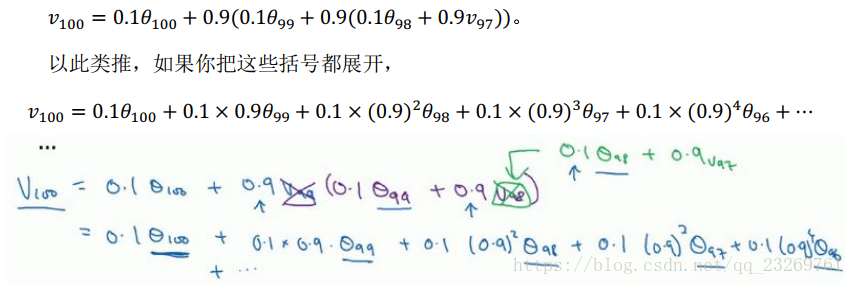 v₁₀₀ = 0.1θ₁₀₀ + 0.9(0.1θ₉₉ + 0.9(0.1θ₉₈ + 0.9v₉₇))。
以此类推，如果你把这些括号都展开，
v₁₀₀ = 0.1θ₁₀₀ + 0.1 × 0.9θ₉₉ + 0.1 × (0.9)²θ₉₈ + 0.1 × (0.9)³θ₉₇ + 0.1 × (0.9)⁴θ₉₆ + ⋯
…
0.1 θ₉₈ + 0.9 v₉₇
V₁₀₀ = 0.1 θ₁₀₀ + 0.9 v₉₉ (0.1 θ₉₉ + 0.9 v₉₈)
= 0.1 θ₁₀₀ + 0.1 × 0.9 · θ₉₉ + 0.1 (0.9)² θ₉₈ + 0.1 (0.9)³ θ₉₇ + 0.1 (0.9)⁴ θ₉₆
+ ⋯